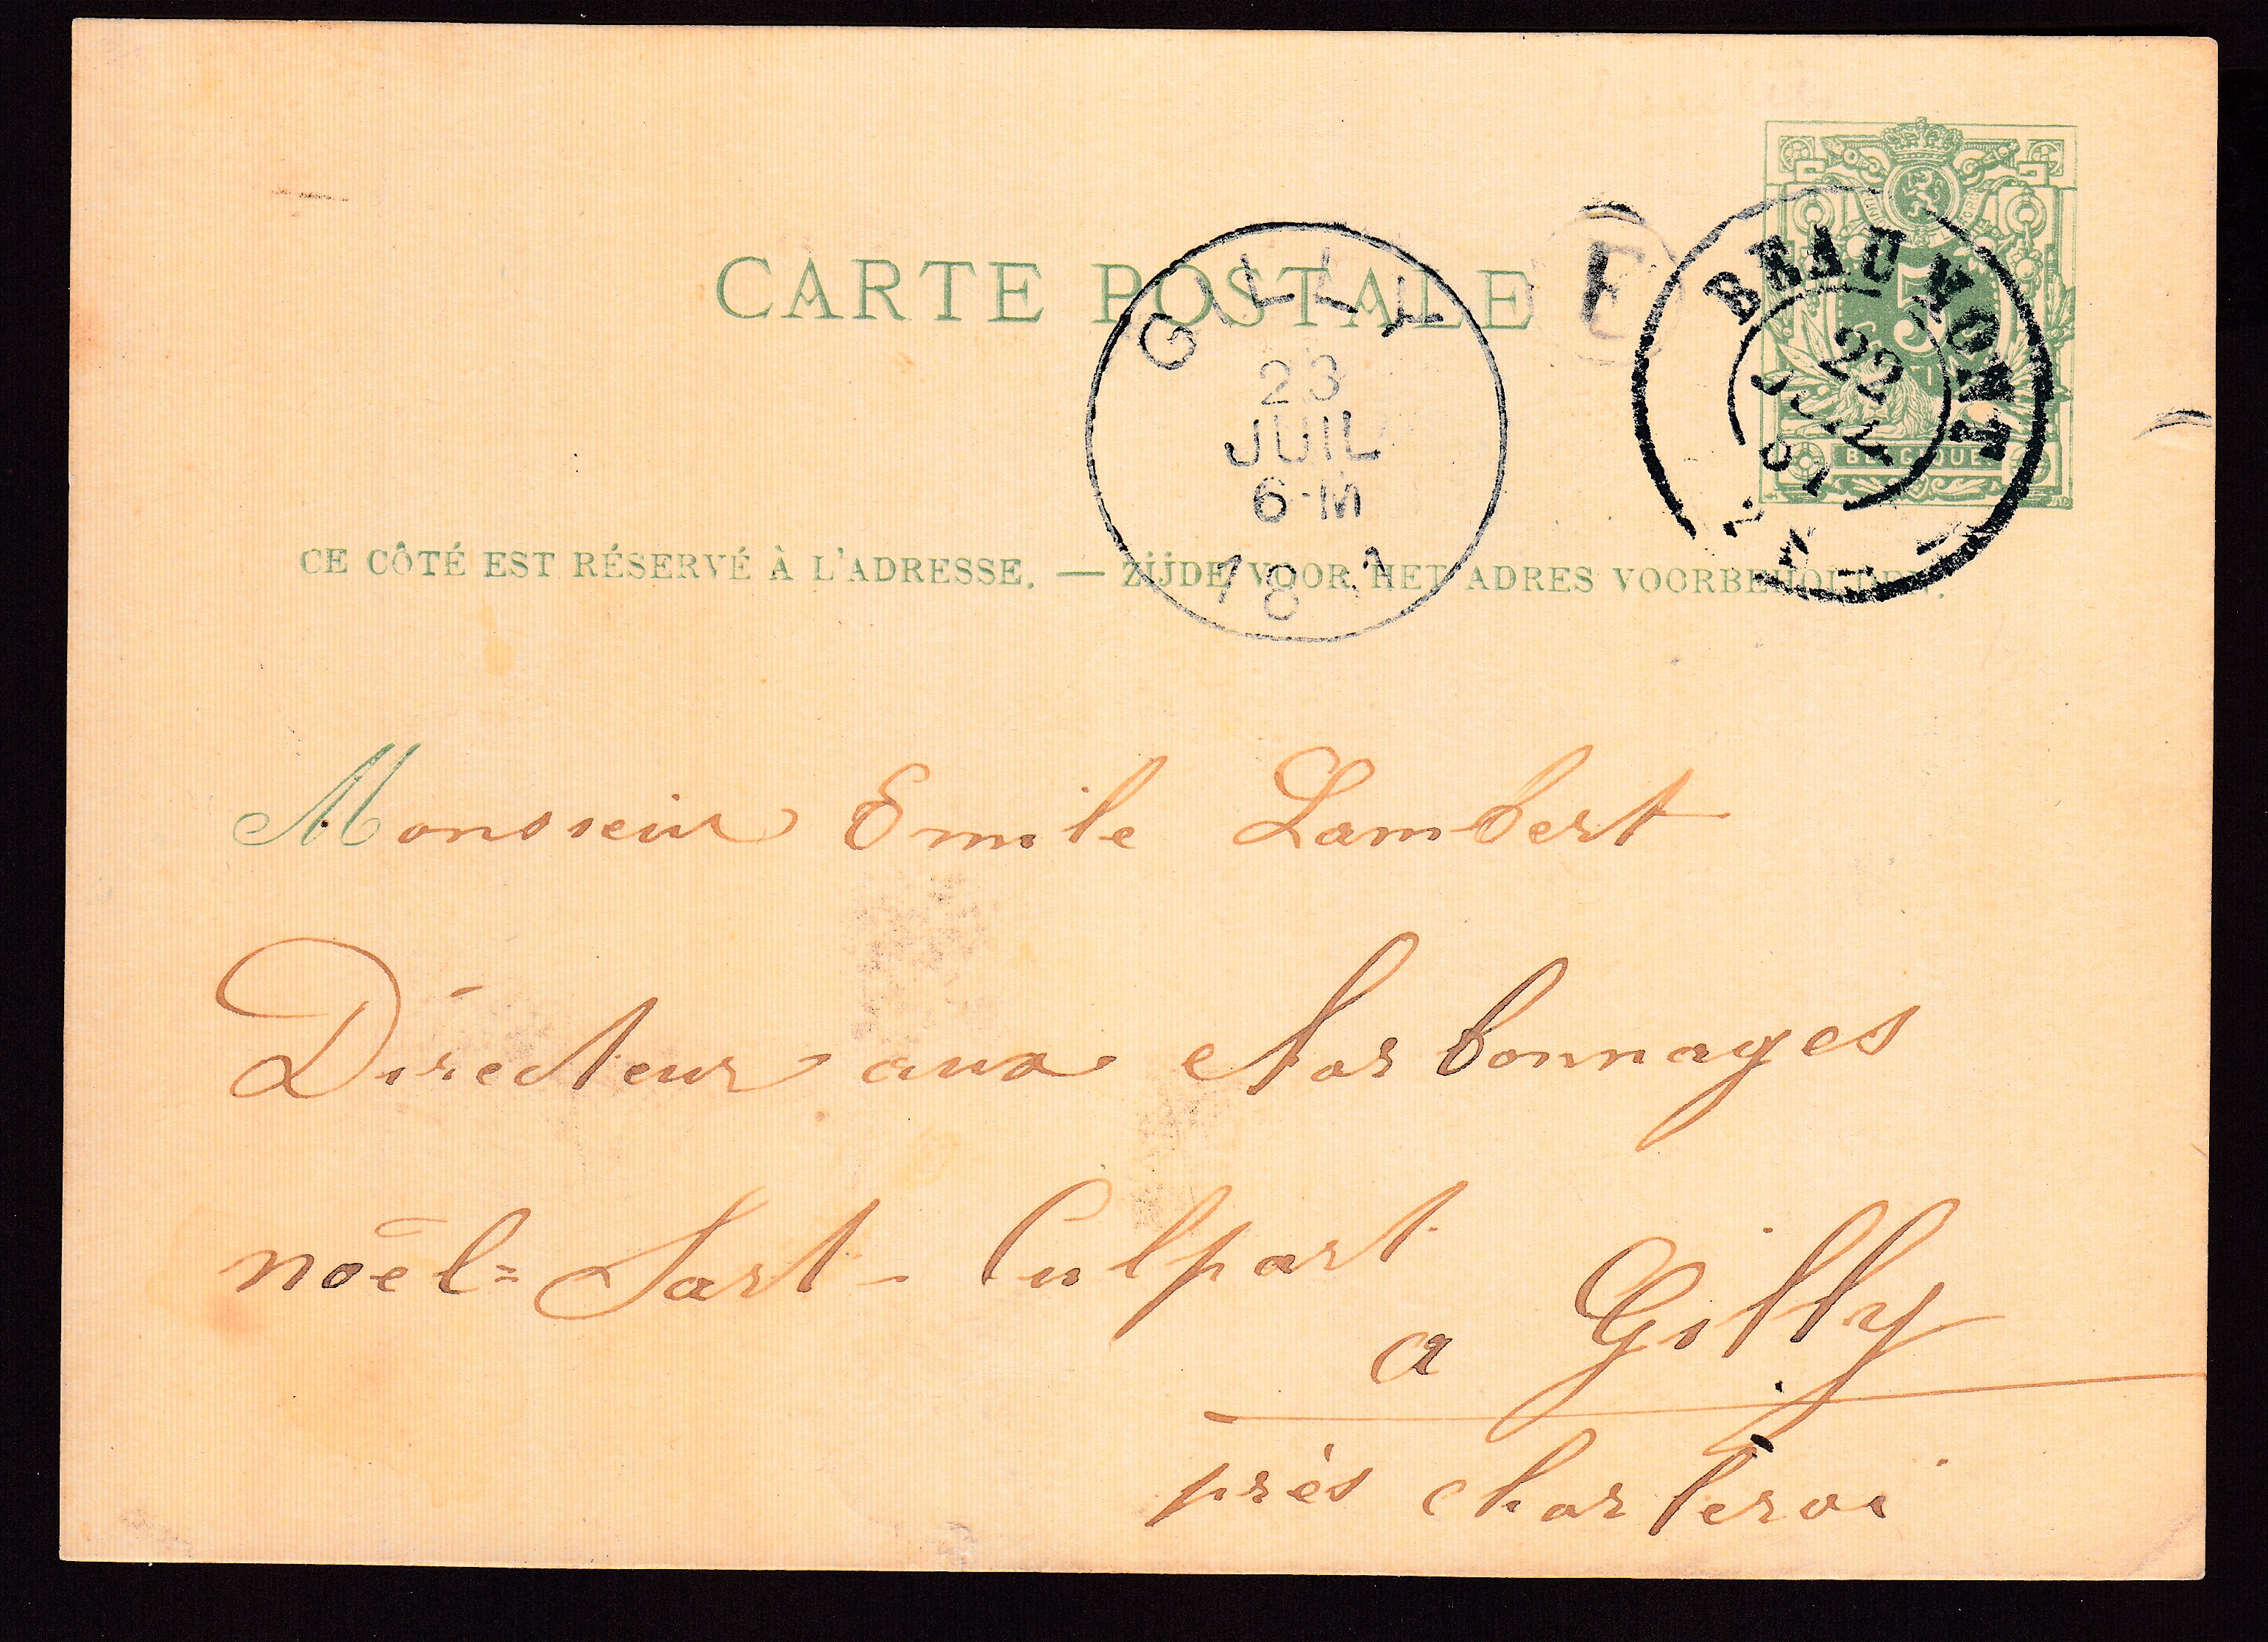 CARTE POSTALE
E
5
BELGIQUE
BEAUMONT
22
JUIL
GILLY
23
JUIL
6-M
18 1
CE CÔTÉ EST RÉSERVÉ À L'ADRESSE. — ZIJDE VOOR HET ADRES VOORBEHOUDEN.
Monsieur Emile Lambert
Directeur aux charbonnages
noël=Sart-Culpart
a Gilly
près charleroi